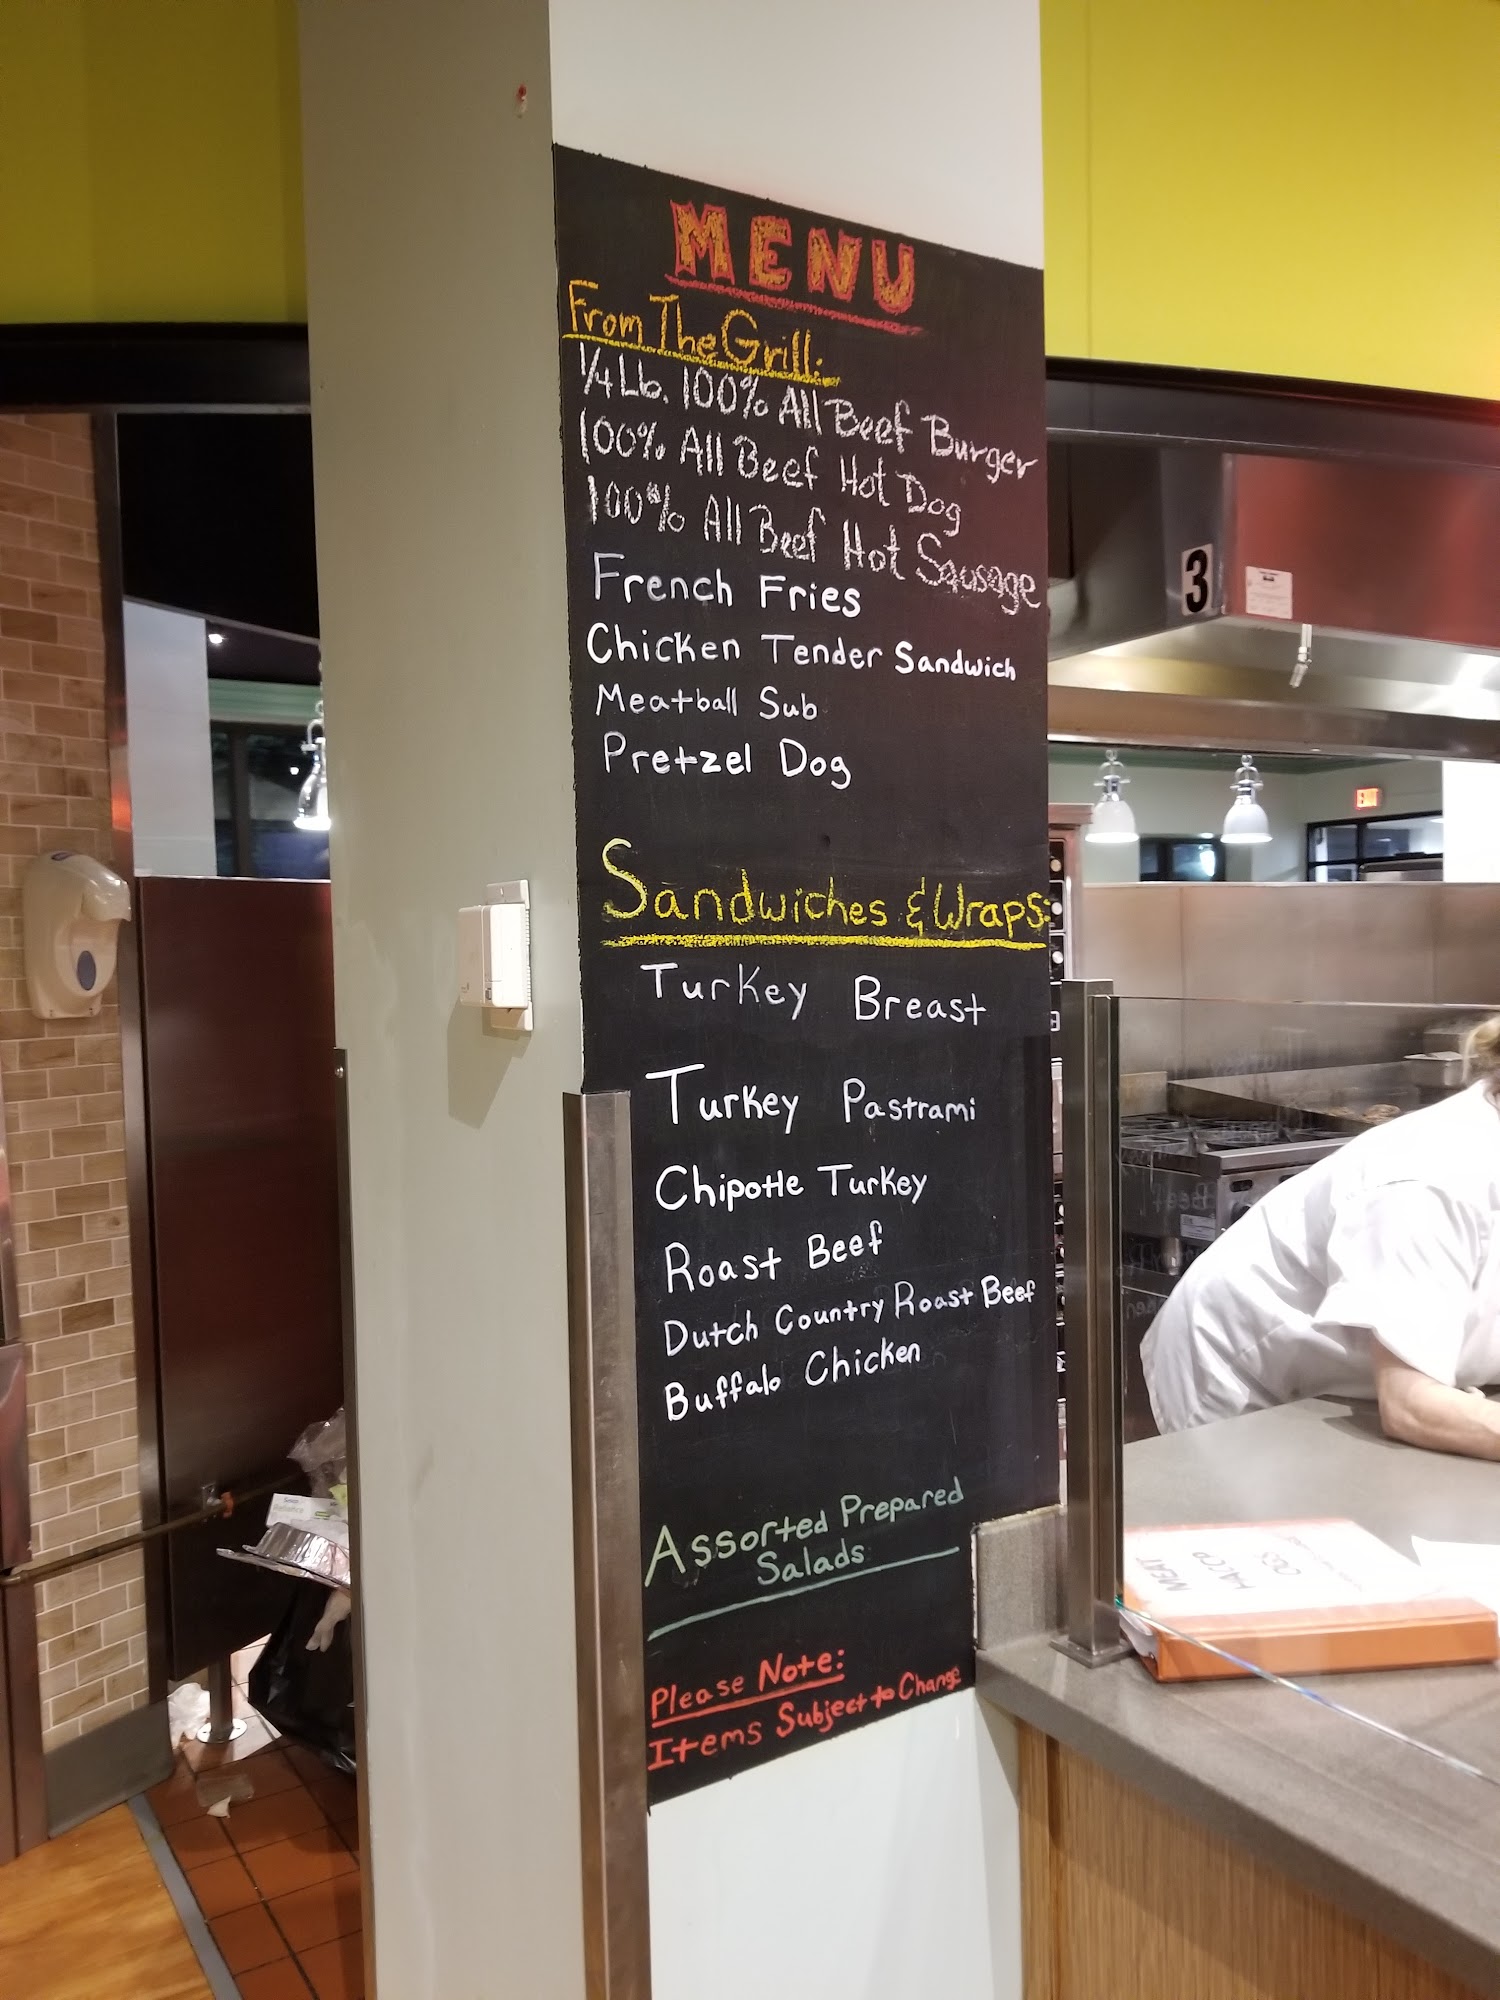 MENU
From The Grill:
1/4 Lb. 100% All Beef Burger
100% All Beef Hot Dog
100% All Beef Hot Sausage
French Fries
Chicken Tender Sandwich
Meatball Sub
Pretzel Dog
Sandwiches & Wraps:
Turkey Breast
Turkey Pastrami
Chipotle Turkey
Roast Beef
Dutch Country Roast Beef
Buffalo Chicken
Assorted Prepared
Salads
Please Note:
Items Subject to Change
3
EXIT
MEAT
HACCP